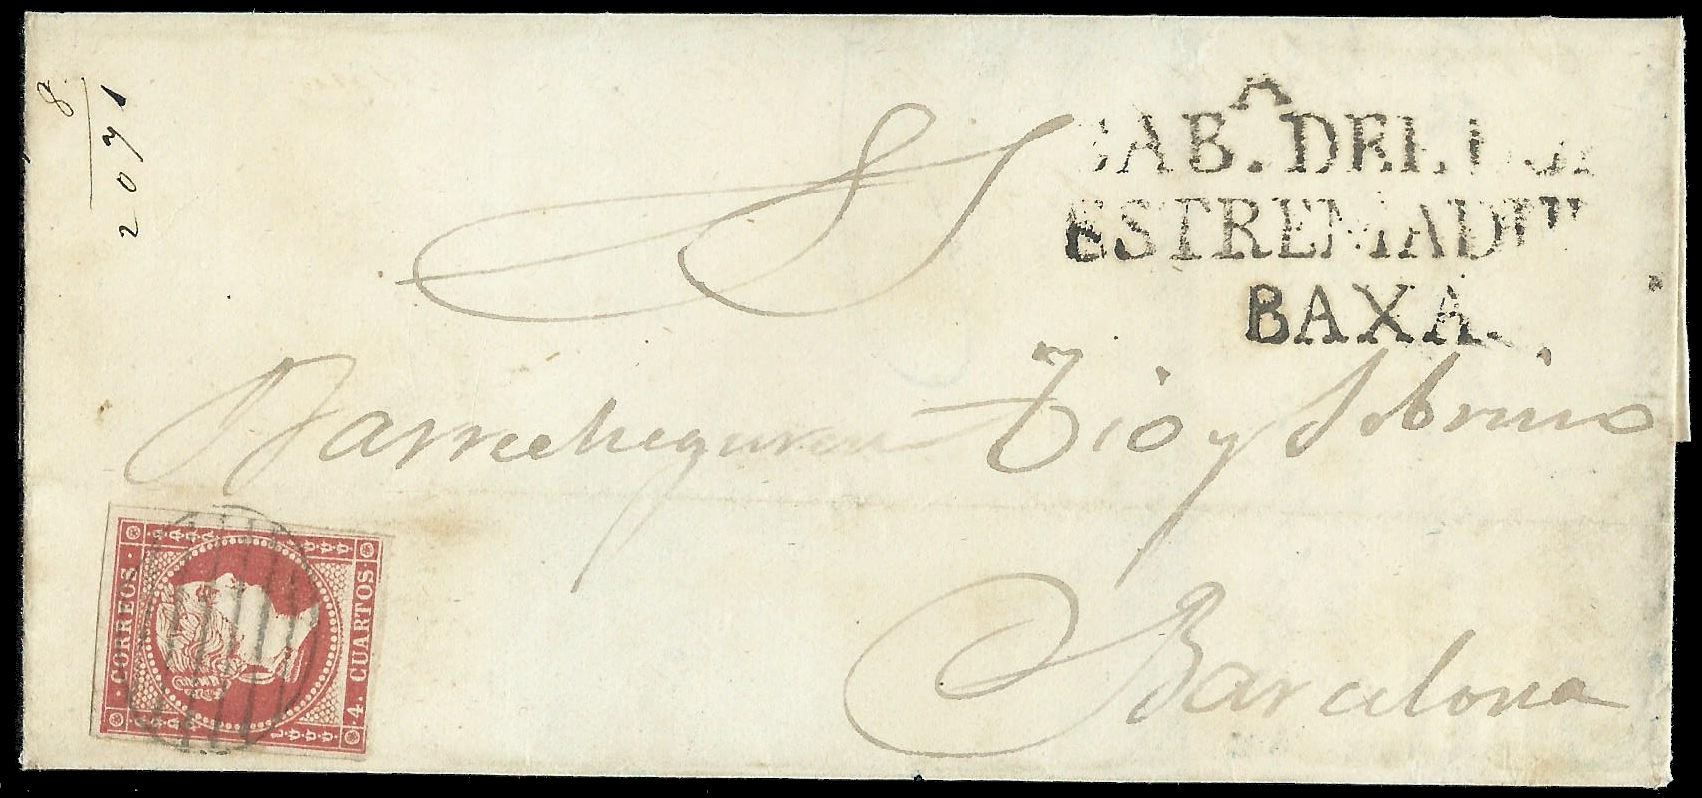 8
2071
A
CAB. DEL
ESTREMADU
BAXA.
SS
Barrecheguren Tio y Sobrino
Barcelona
CORREOS
4. CUARTOS